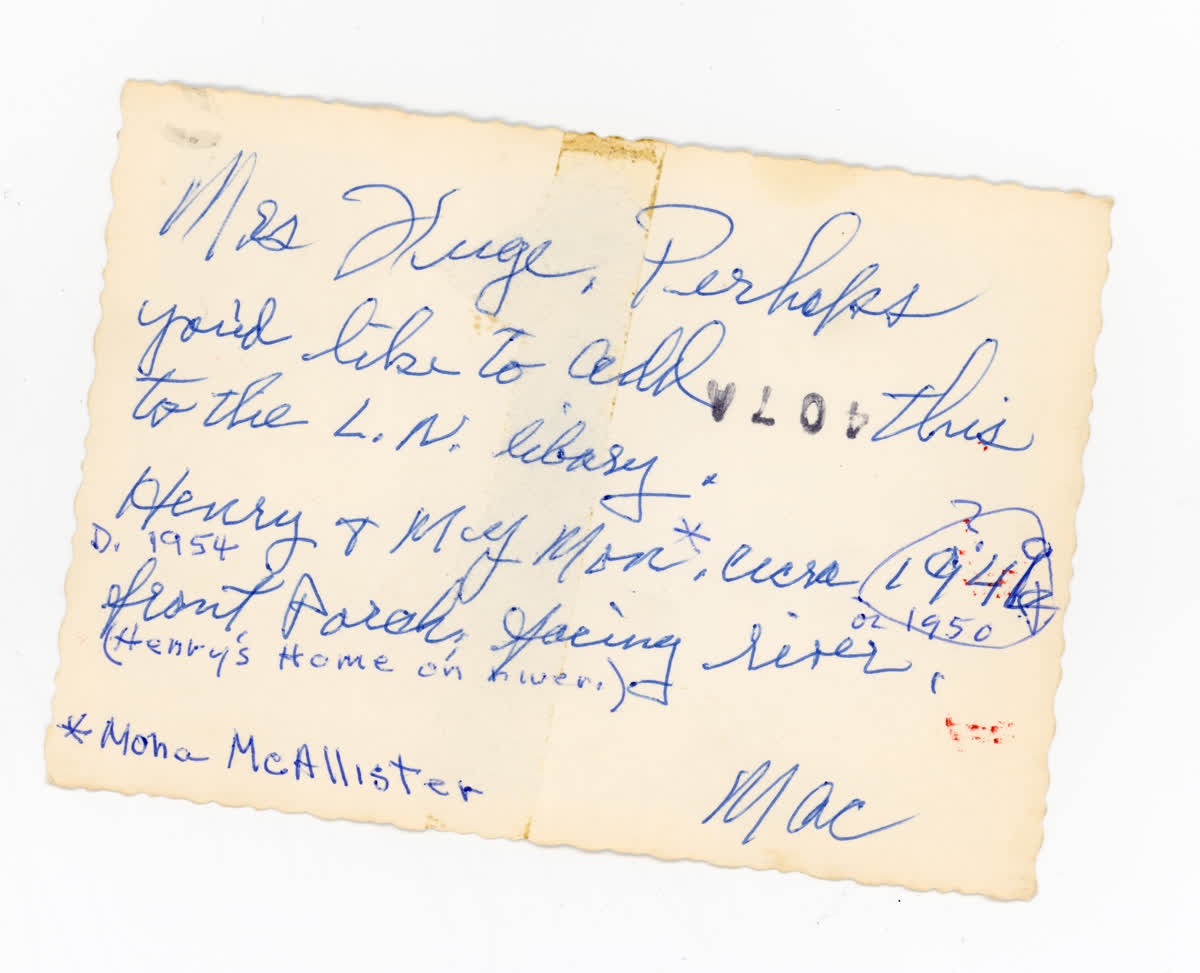 Mrs Kluge, Perhaps
you'd like to add this
407A
to the L. N. libary.
Henry & My Mon*, circa 194
D. 1954
or 1950
front Porch, facing river.
(Henry's Home on river.)
*Mona McAllister
Mac